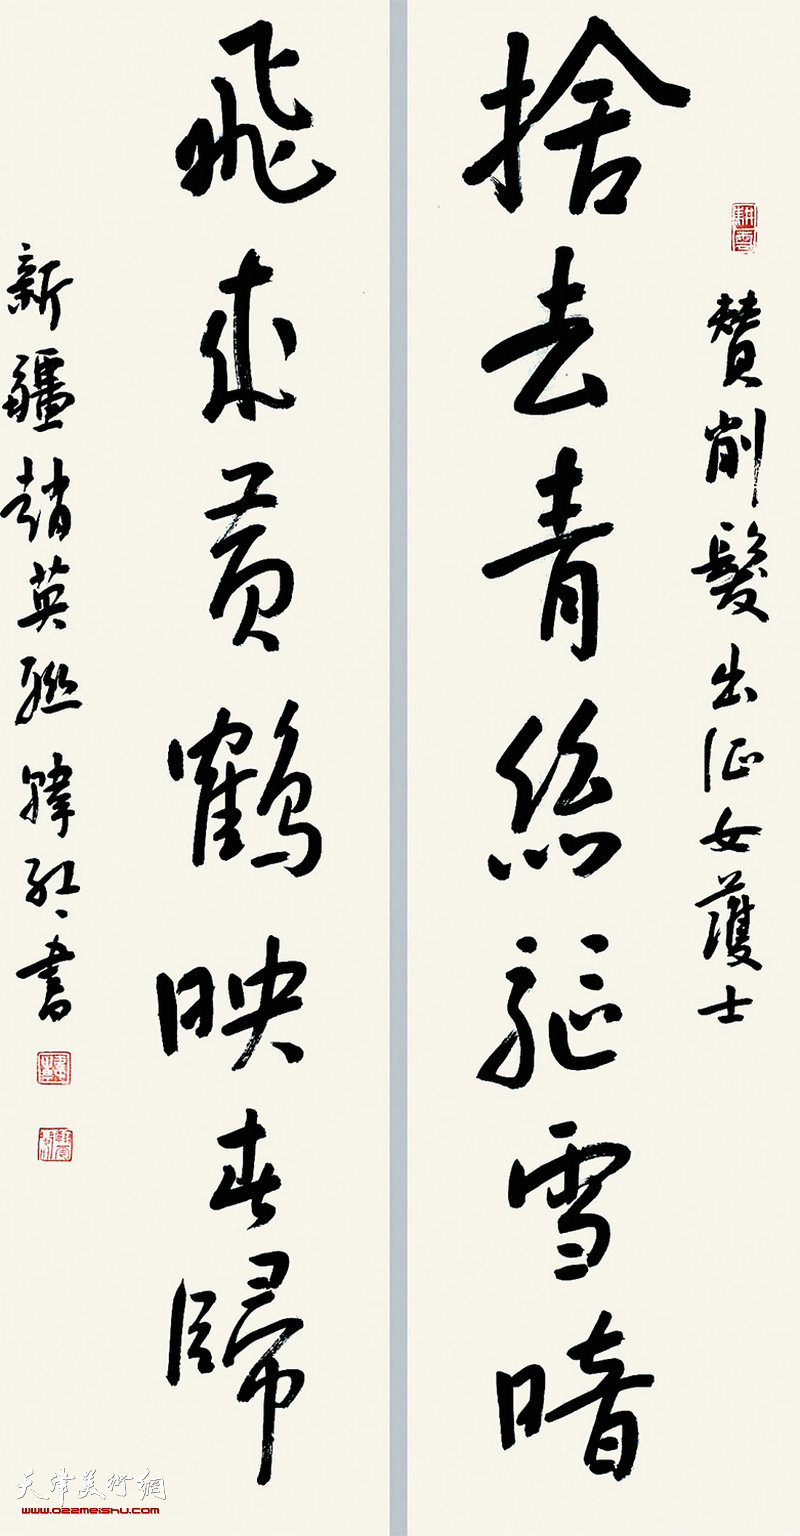 贊削髮出征女護士
捨去青絲驅雪暗
飛來黃鶴映春歸
新疆趙英聯韓書
天津美術網
www.022meishu.com